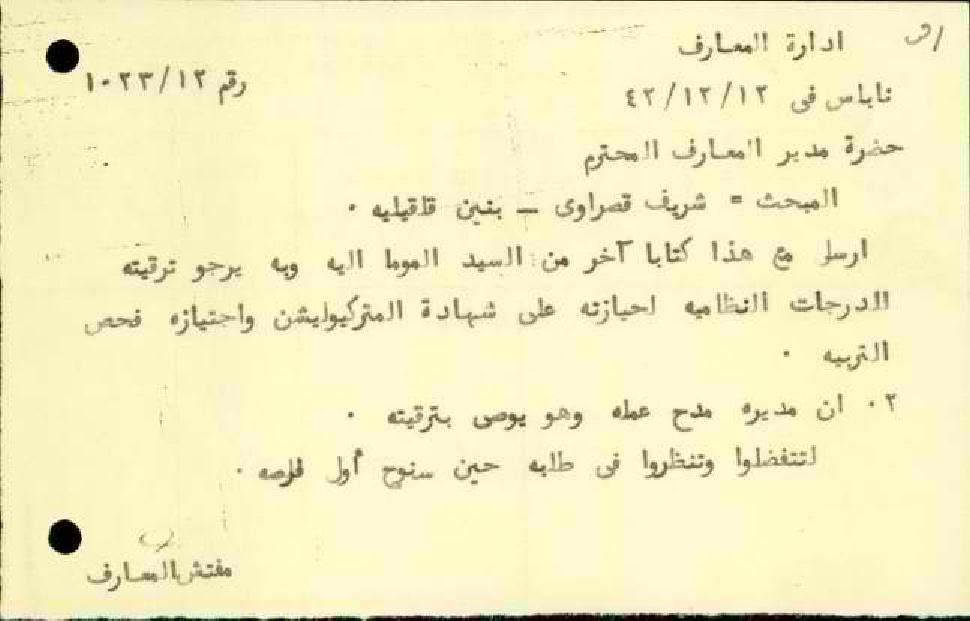 ادارة المعارف
رقم ١٠٢٣/١٢
نابلس فى ٤٢/١٢/١٢
حضرة مدير المعارف المحترم
المبحث = شريف قصراوى ـ بنين قلقيليه ٠
ارسل مع هذا كتابا آخر من السيد الموما اليه وبه يرجو ترقيته
للدرجات النظاميه لحيازته على شهادة المتركيوليشن واجتيازه فحص
التربيه ٠
٢٠ ان مديره مدح عمله وهو يوصى بترقيته ٠
لتتفضلوا وتنظروا فى طلبه حين سنوح أول فرصه ٠
مفتش المعارف